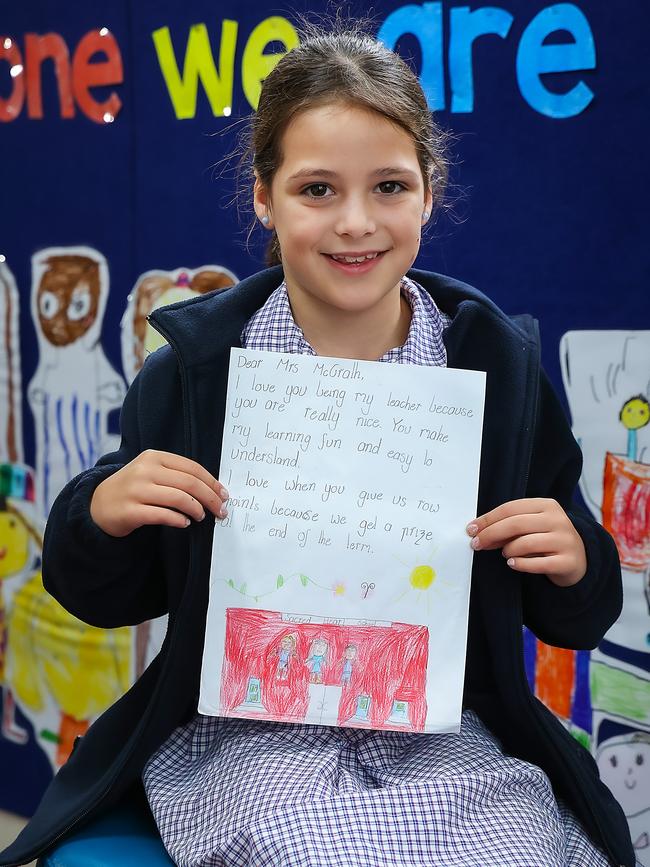 one we are
Dear Mrs McGrath,
I love you being my teacher because
you are really nice. You make
my learning fun and easy to
understand.
I love when you give us row
points because we get a prize
at the end of the term.
Sacred Heart School